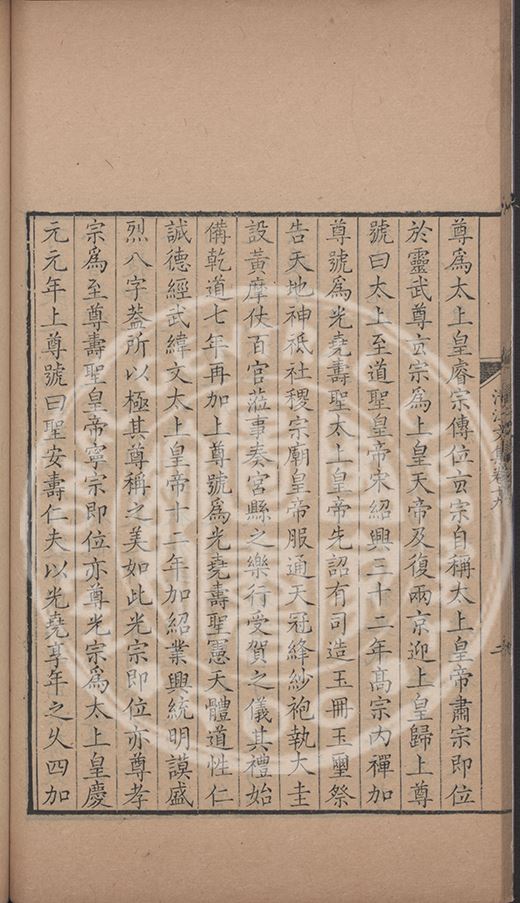 尊爲太上皇睿宗傳位玄宗自稱太上皇帝肅宗即位
於靈武尊玄宗爲上皇天帝及復兩京迎上皇歸上尊
號曰太上至道聖皇帝宋紹興三十二年高宗内禪加
尊號爲光堯壽聖太上皇帝先詔有司造玉冊玉璽祭
告天地神祗社稷宗廟皇帝服通天冠絳紗袍執大圭
設黃摩仗百官蒞事奏宮縣之樂行受賀之儀其禮始
備乾道七年再加上尊號爲光堯壽聖憲天體道性仁
誠德經武緯文太上皇帝十二年加紹業興統明謨盛
烈八字葢所以極其尊稱之美如此光宗即位亦尊孝
宗爲至尊壽聖皇帝寧宗即位亦尊光宗爲太上皇慶
元元年上尊號曰聖安壽仁夫以光堯享年之乆四加